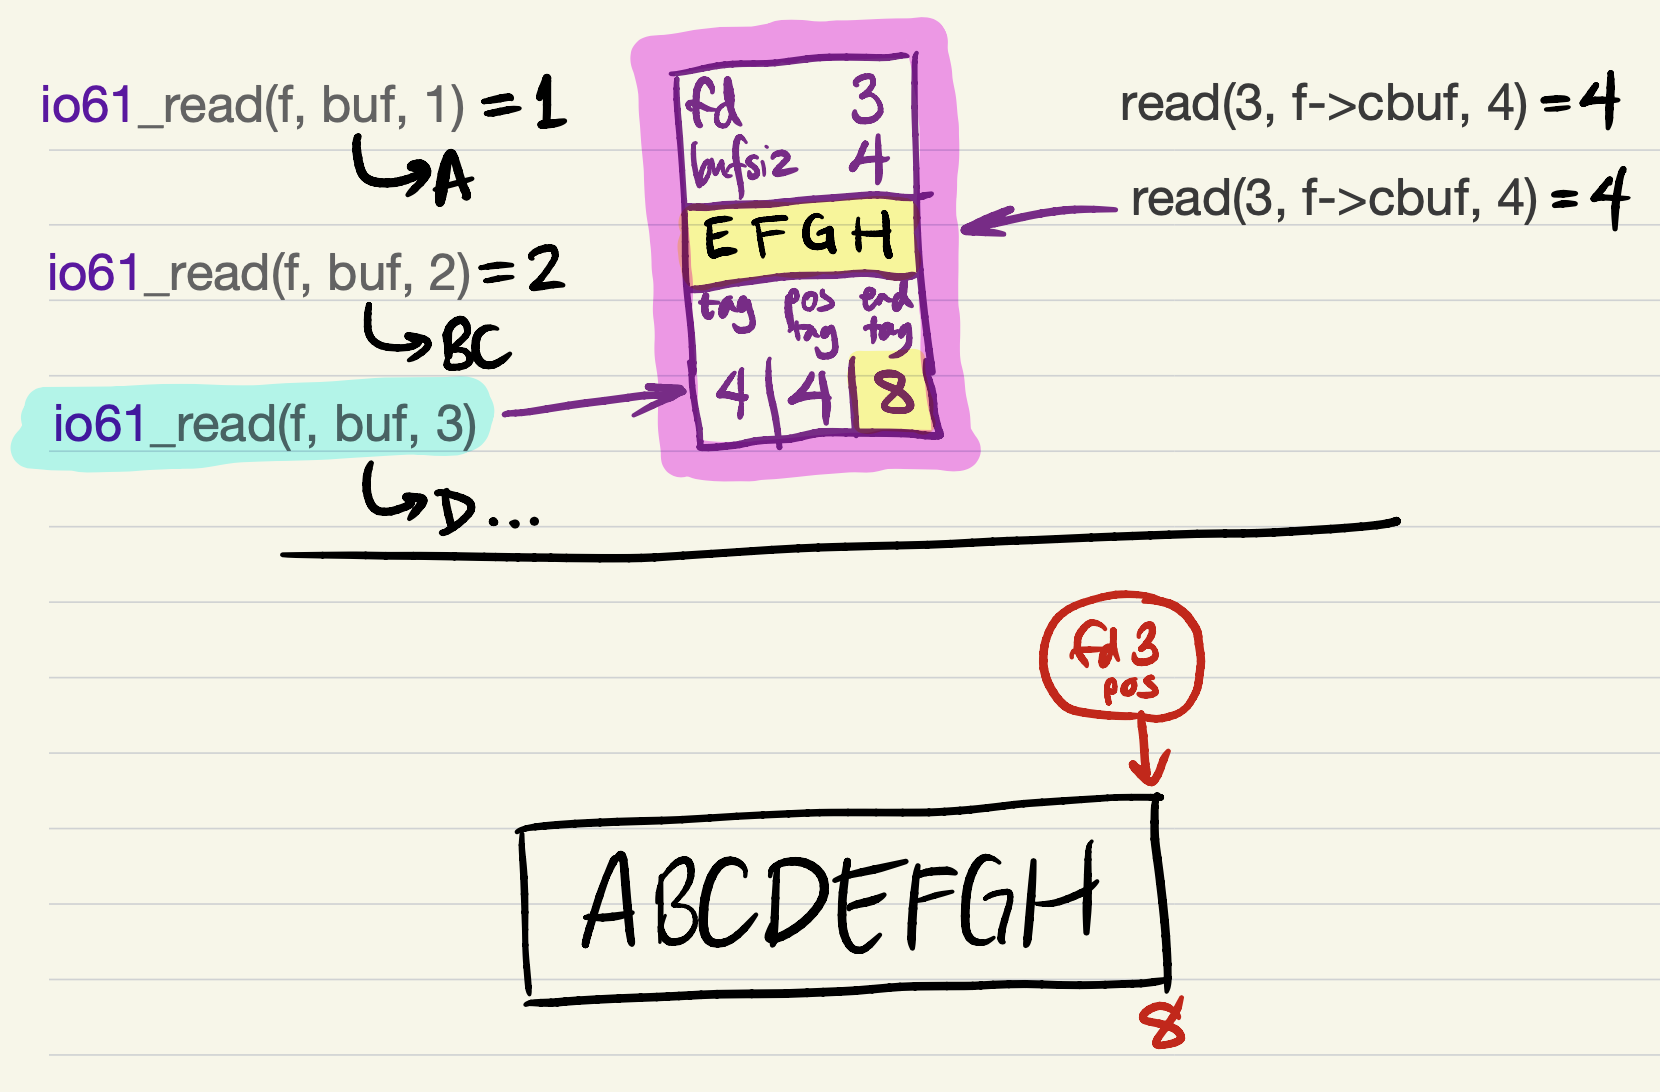 io61_read(f, buf, 1) = 1
A
io61_read(f, buf, 2) = 2
BC
io61_read(f, buf, 3)
D...
fd 3
bufsiz 4
E F G H
tag pos tag end tag
4 4 8
read(3, f->cbuf, 4) = 4
read(3, f->cbuf, 4) = 4
fd 3
pos
ABCDEFGH
8